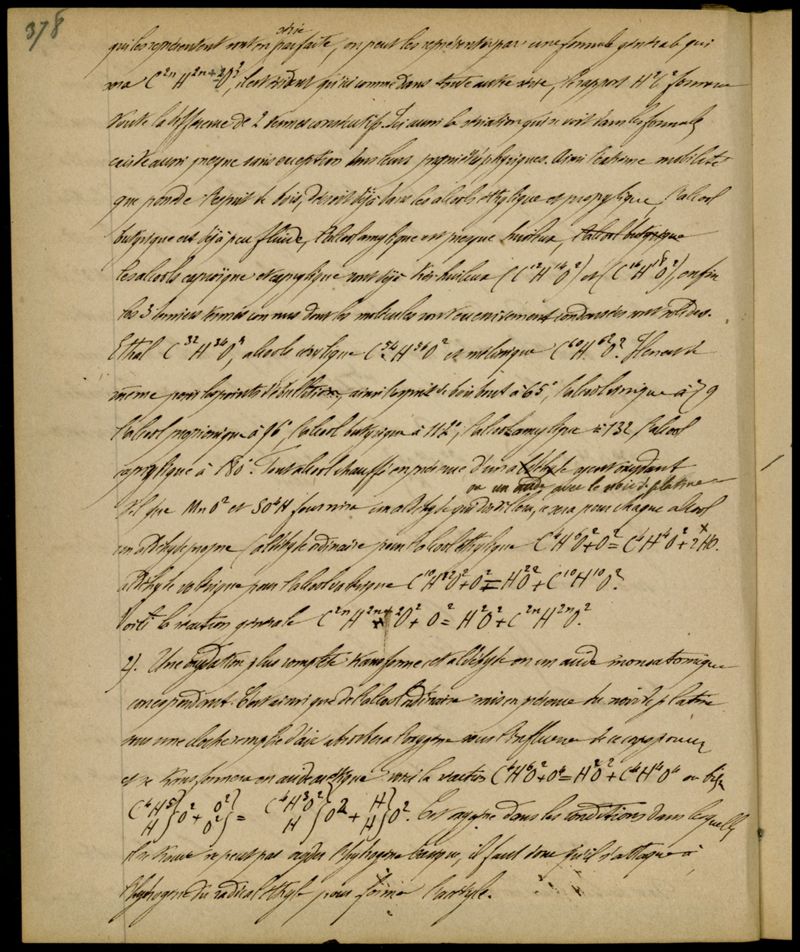 378
qui les représentent sont en série parfaite, on peut les représenter par une formule générale qui
sera C²ⁿH²ⁿ⁺²O², il est évident qu'ici comme dans toute autre série, le rapport H²C² formera
toute la différence de 2 termes consécutifs. Ici aussi la variation qui se voit dans les formules
existe aussi presque sans exception dans leurs propriétés physiques. Ainsi l'extrême mobilité
que possède l'esprit de bois, décroit déjà dans les alcools éthylique et propylique, l'alcool
butyrique est déjà peu fluide, l'alcool amylique est presque huileux, l'alcool butyrique
les alcools caproïque et caprylique sont déjà très huileux (C¹²H¹⁴O²) et (C¹⁶H¹⁸O²), enfin
les 3 derniers termes connus dont les molécules sont condensées sont solides.
Ethal C³²H³⁴O², alcools cérylique C⁵⁴H⁵⁶O² et mélissique C⁶⁰H⁶²O². Il en est de
même pour les points d'ébullition, ainsi l'esprit de bois bout à 65°, l'alcool à 79
l'alcool propionique à 96°, l'alcool butyrique à 112°, l'alcool amylique à 132 l'alcool
caprylique à 180°. Tout alcool chauffé en présence d'un oxydant
ou un acide avec le noir de platine
tel que MnO² et SO⁴H fournira un aldéhyde qui sera pour chaque alcool
un aldéhyde propre l'aldéhyde ordinaire pour l'alcool éthylique C⁴H⁶O²+O²=C⁴H⁴O²+2HO.
aldéhyde valérique pour l'alcool valérique C¹⁰H¹²O²+O²=H²O²+C¹⁰H¹⁰O².
Voici la réaction générale C²ⁿH²ⁿ⁺²O²+O²=H²O²+C²ⁿH²ⁿO².
2). Une oxydation plus complète transforme cet aldéhyde en un acide monoatomique
correspondant. C'est ainsi que de l'alcool ordinaire mis en présence du noir de platine
sous une cloche remplie d'air absorbera l'oxygène sous l'influence de ce corps poreux
et se transformera en acide acétique voici la réaction C⁴H⁶O²+O⁴=H²O²+C⁴H⁴O⁴ ou bien
C⁴H⁵ H}O²+O² O²}= C⁴H³O² H}O²+H H}O². Cet oxygène dans les conditions dans lesquelles
il se trouve ne peut pas oxyder l'hydrogène basique, il faut donc qu'il s'attaque à
l'hydrogène du radical éthyle pour former l'acétyle.